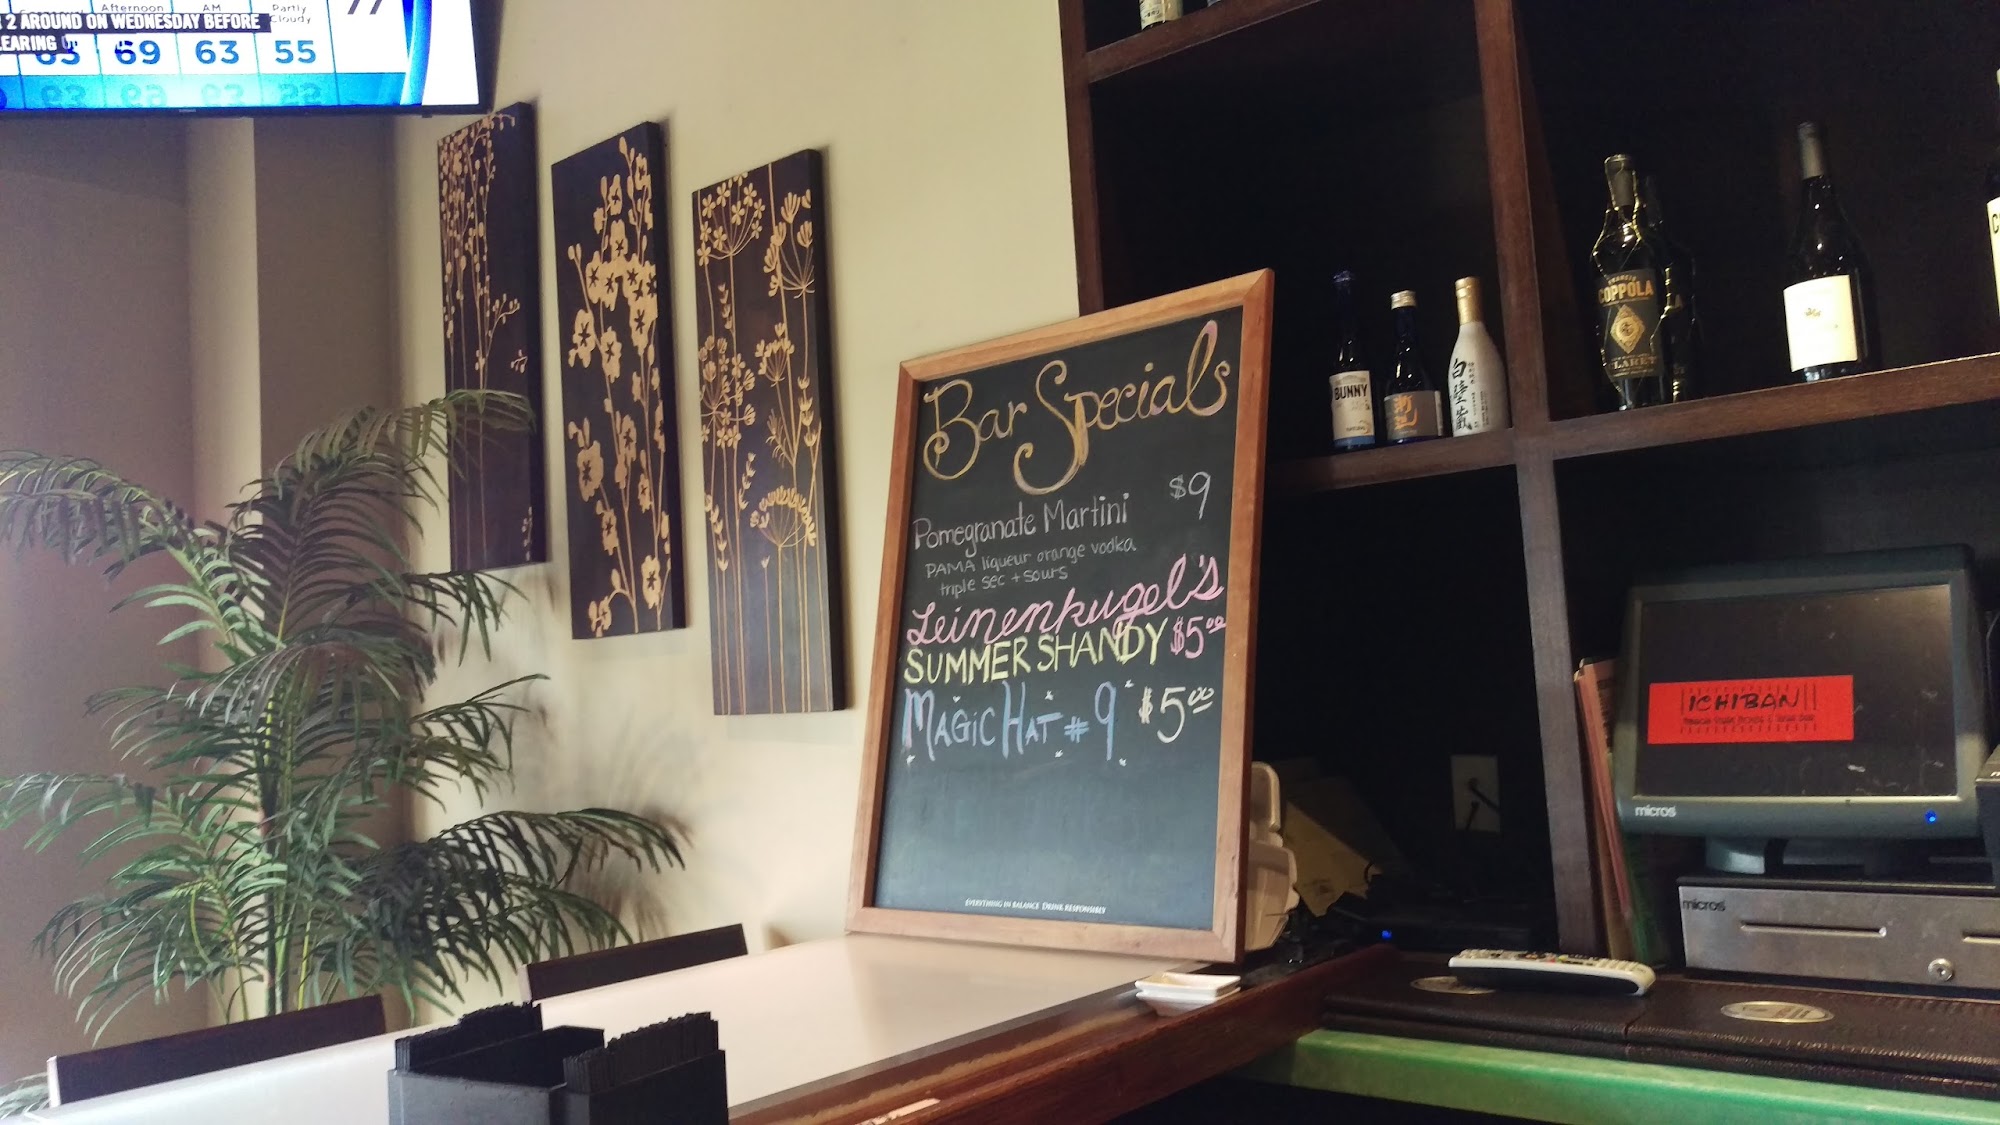 Afternoon AM Partly
Cloudy
77
2 AROUND ON WEDNESDAY BEFORE
63 69 63 55
Bar Specials
Pomegranate Martini $9
PAMA liqueur orange vodka
triple sec + sours
Leinenkugel's
SUMMER SHANDY $5.00
MAGIC HAT #9 $5.00
EVERYTHING IN BALANCE DRINK RESPONSIBLY
BUNNY
COPPOLA
CLARET
ICHIBAN
micros
micros